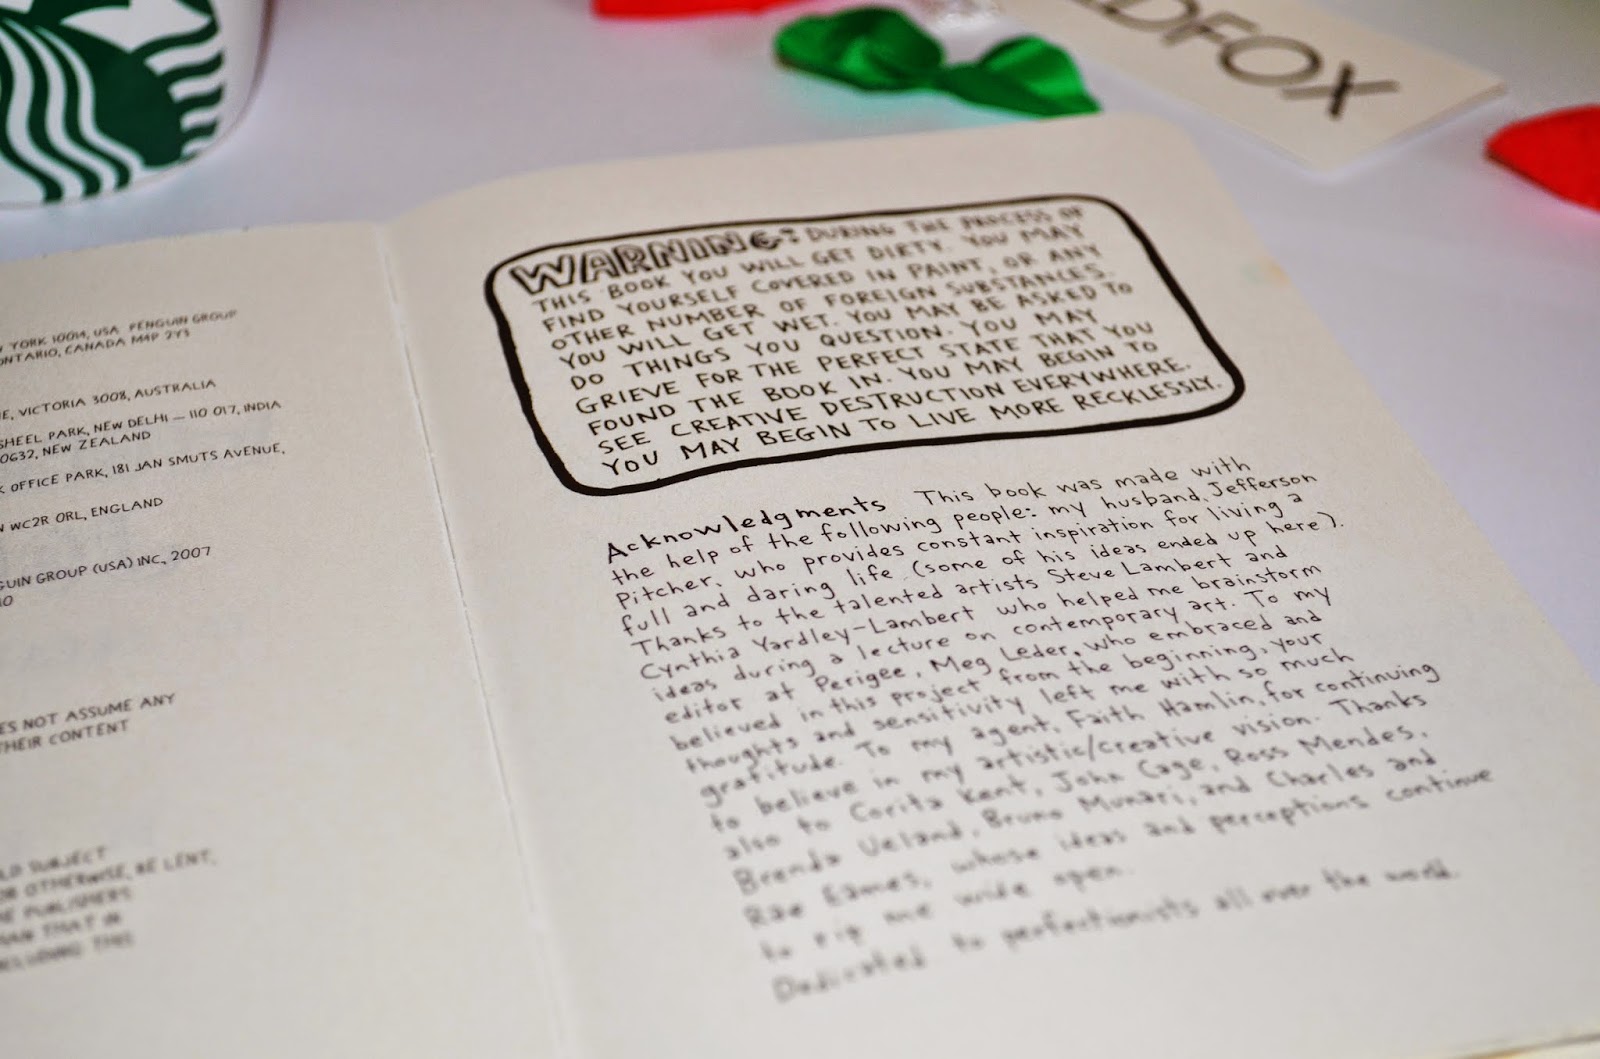 DFOX
YORK 10014, USA PENGUIN GROUP
ONTARIO, CANADA M4P 2Y3
E, VICTORIA 3008, AUSTRALIA
SHEEL PARK, NEW DELHI – 110 017, INDIA
0632, NEW ZEALAND
OFFICE PARK, 181 JAN SMUTS AVENUE,
WC2R ORL, ENGLAND
GUIN GROUP (USA) INC., 2007
ES NOT ASSUME ANY
THEIR CONTENT
LD SUBJECT
OR OTHERWISE, BE LENT,
PUBLISHERS
THAT IN
THIS
WARNING: DURING THE PROCESS OF
THIS BOOK YOU WILL GET DIRTY. YOU MAY
FIND YOURSELF COVERED IN PAINT, OR ANY
OTHER NUMBER OF FOREIGN SUBSTANCES.
YOU WILL GET WET. YOU MAY BE ASKED TO
DO THINGS YOU QUESTION. YOU MAY
GRIEVE FOR THE PERFECT STATE THAT YOU
FOUND THE BOOK IN. YOU MAY BEGIN TO
SEE CREATIVE DESTRUCTION EVERYWHERE.
YOU MAY BEGIN TO LIVE MORE RECKLESSLY.
Acknowledgments This book was made with
the help of the following people: my husband, Jefferson
Pitcher, who provides constant inspiration for living a
full and daring life (some of his ideas ended up here).
Thanks to the talented artists Steve Lambert and
Cynthia Yardley–Lambert who helped me brainstorm
ideas during a lecture on contemporary art. To my
editor at Perigee, Meg Leder, who embraced and
believed in this project from the beginning, your
thoughts and sensitivity left me with so much
gratitude. To my agent, Faith Hamlin, for continuing
to believe in my artistic/creative vision. Thanks
also to Corita Kent, John Cage, Ross Mendes,
Brenda Ueland, Bruno Munari, and Charles and
Rae Eames, whose ideas and perceptions continue
to rip me wide open.
Dedicated to perfectionists all over the world.